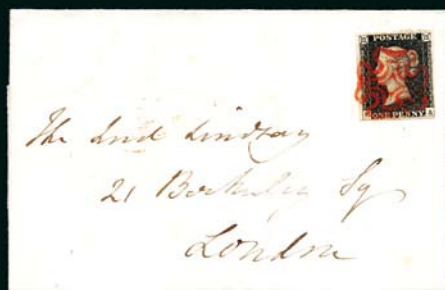 POSTAGE
ONE PENNY
The Lord Lindsay
21 Berkeley Sq
London